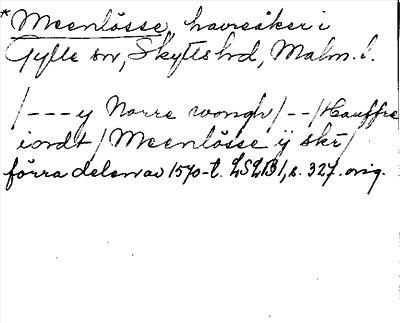 *Meenlösse, havreåker i
Gylle sn, Skytts hd, Malm. l.
/---y Norre wongh/--/Hauffre
iordt/Meenlösse ÿ skr/
förra delen av 1570-t. LSLB1, s. 327. orig.